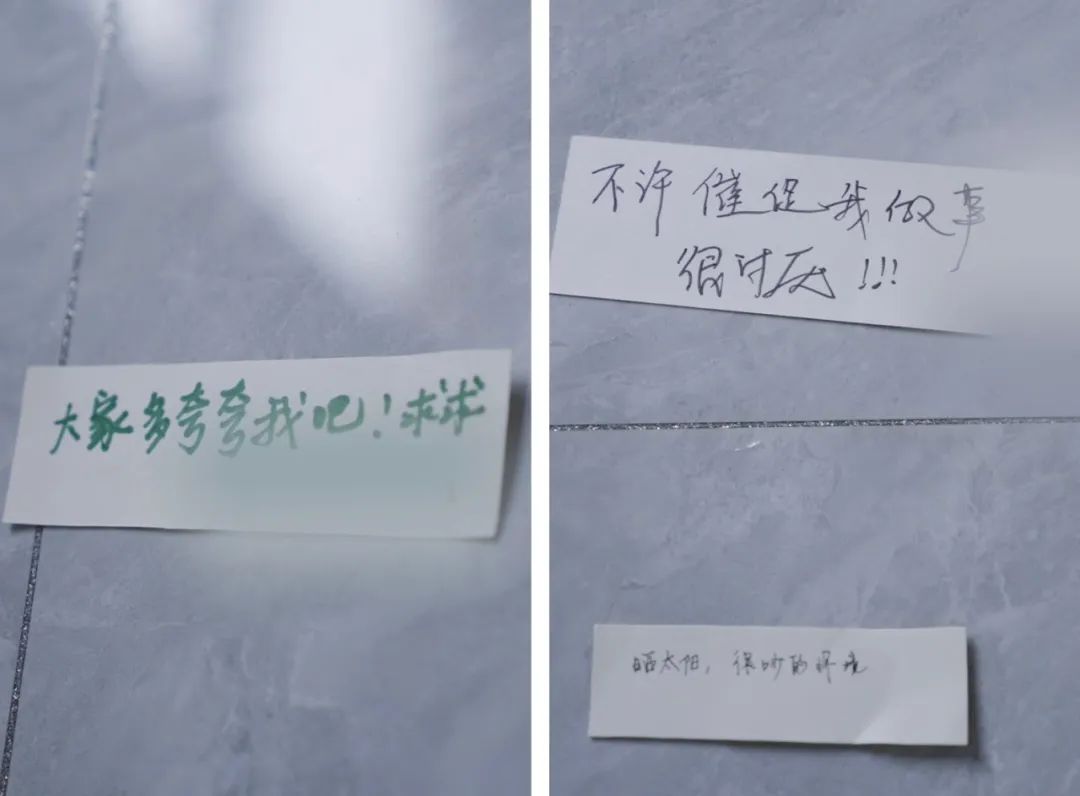 大家多夸夸我吧！求求
不许催促我做事
很讨厌!!!
晒太阳，很吵的环境